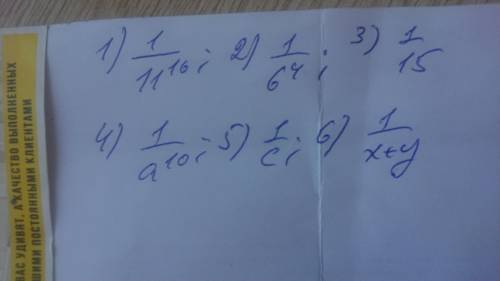 1) 1/11¹⁶; 2) 1/6⁴; 3) 1/15
4) 1/a¹⁰; 5) 1/c; 6) 1/x+y
ВАС УДИВЯТ, А КАЧЕСТВО ВЫПОЛНЕННЫХ
ШИМИ ПОСТОЯННЫМИ КЛИЕНТАМИ